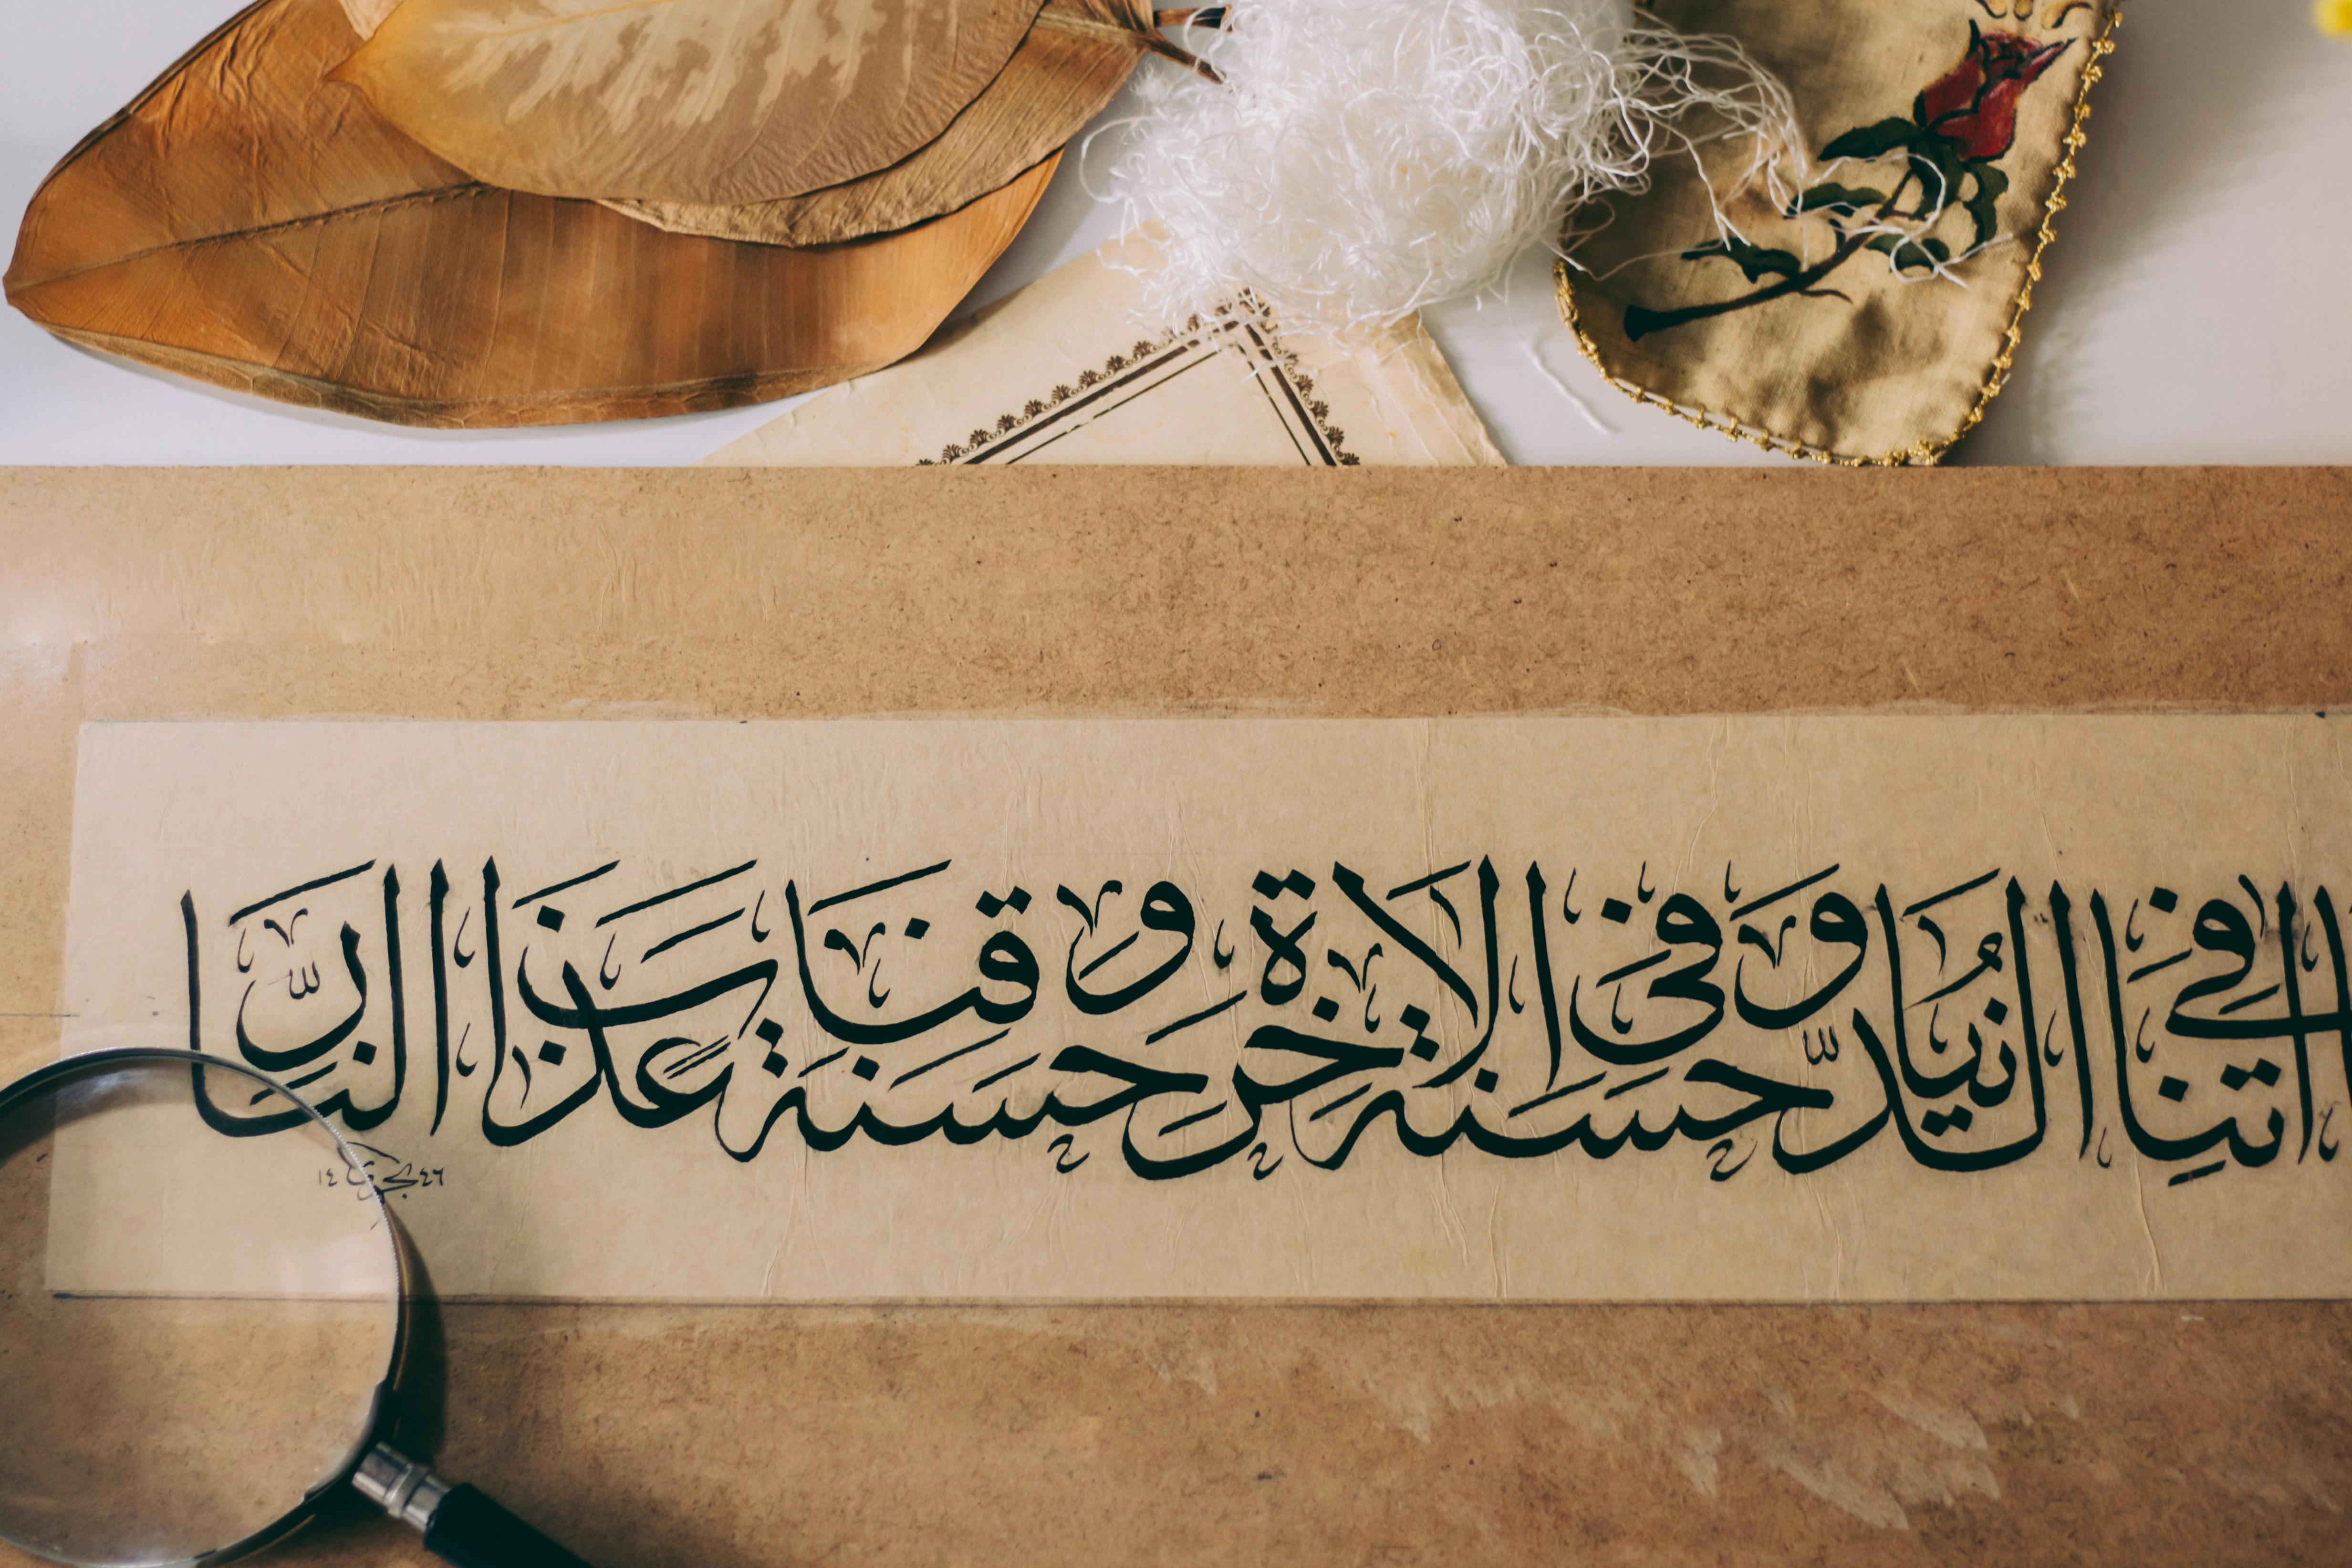 اٰتِنَا فِي الدُّنْيَا حَسَنَةً وَفِي الْاٰخِرَةِ حَسَنَةً وَقِنَا عَذَابَ النَّارِ